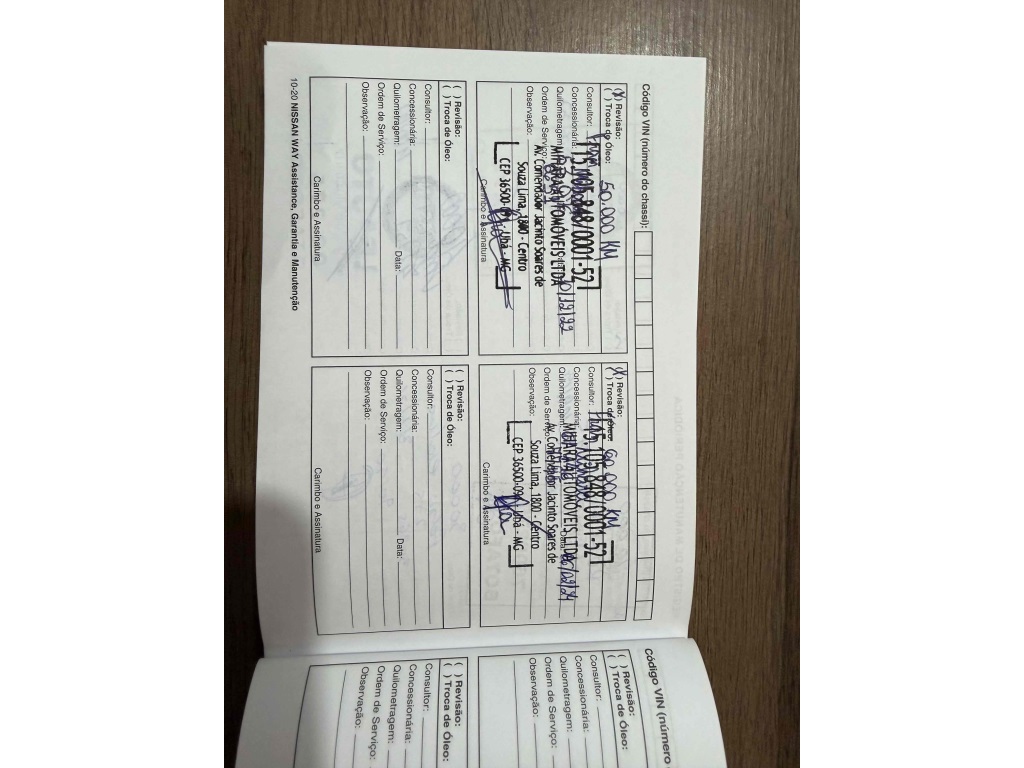 Código VIN (número do chassi):
(X) Revisão: 50.000 KM
( ) Troca de Óleo:
Consultor:
Concessionária:
Quilometragem:
Ordem de Serviço:
Observação:
15.105.848/0001-52
AUTOMÓVEIS LTDA
Av. Comendador Jacinto Soares de
Souza Lima, 1800 - Centro
CEP 36500-09 - Ubá - MG
Carimbo e Assinatura
(X) Revisão: 60.000 KM
( ) Troca de Óleo:
Consultor:
Concessionária:
Quilometragem: Data:
Ordem de Serviço:
Observação:
15.105.848/0001-52
AUTOMÓVEIS LTDA
Av. Comendador Jacinto Soares de
Souza Lima, 1800 - Centro
CEP 36500-09 - Ubá - MG
Carimbo e Assinatura
( ) Revisão:
( ) Troca de Óleo:
Consultor:
Concessionária:
Quilometragem: Data:
Ordem de Serviço:
Observação:
Carimbo e Assinatura
( ) Revisão:
( ) Troca de Óleo:
Consultor:
Concessionária:
Quilometragem: Data:
Ordem de Serviço:
Observação:
Carimbo e Assinatura
10-20 NISSAN WAY Assistance, Garantia e Manutenção
Código VIN (número
( ) Revisão:
( ) Troca de Óleo:
Consultor:
Concessionária:
Quilometragem:
Ordem de Serviço:
Observação:
( ) Revisão:
( ) Troca de Óleo:
Consultor:
Concessionária:
Quilometragem:
Ordem de Serviço:
Observação: